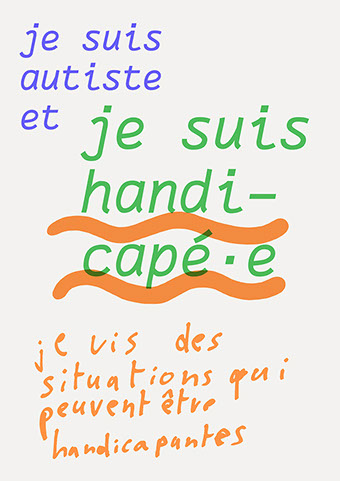 je suis
autiste
et
je suis
handi-
capé·e
je vis des
situations qui
peuvent être
handicapantes